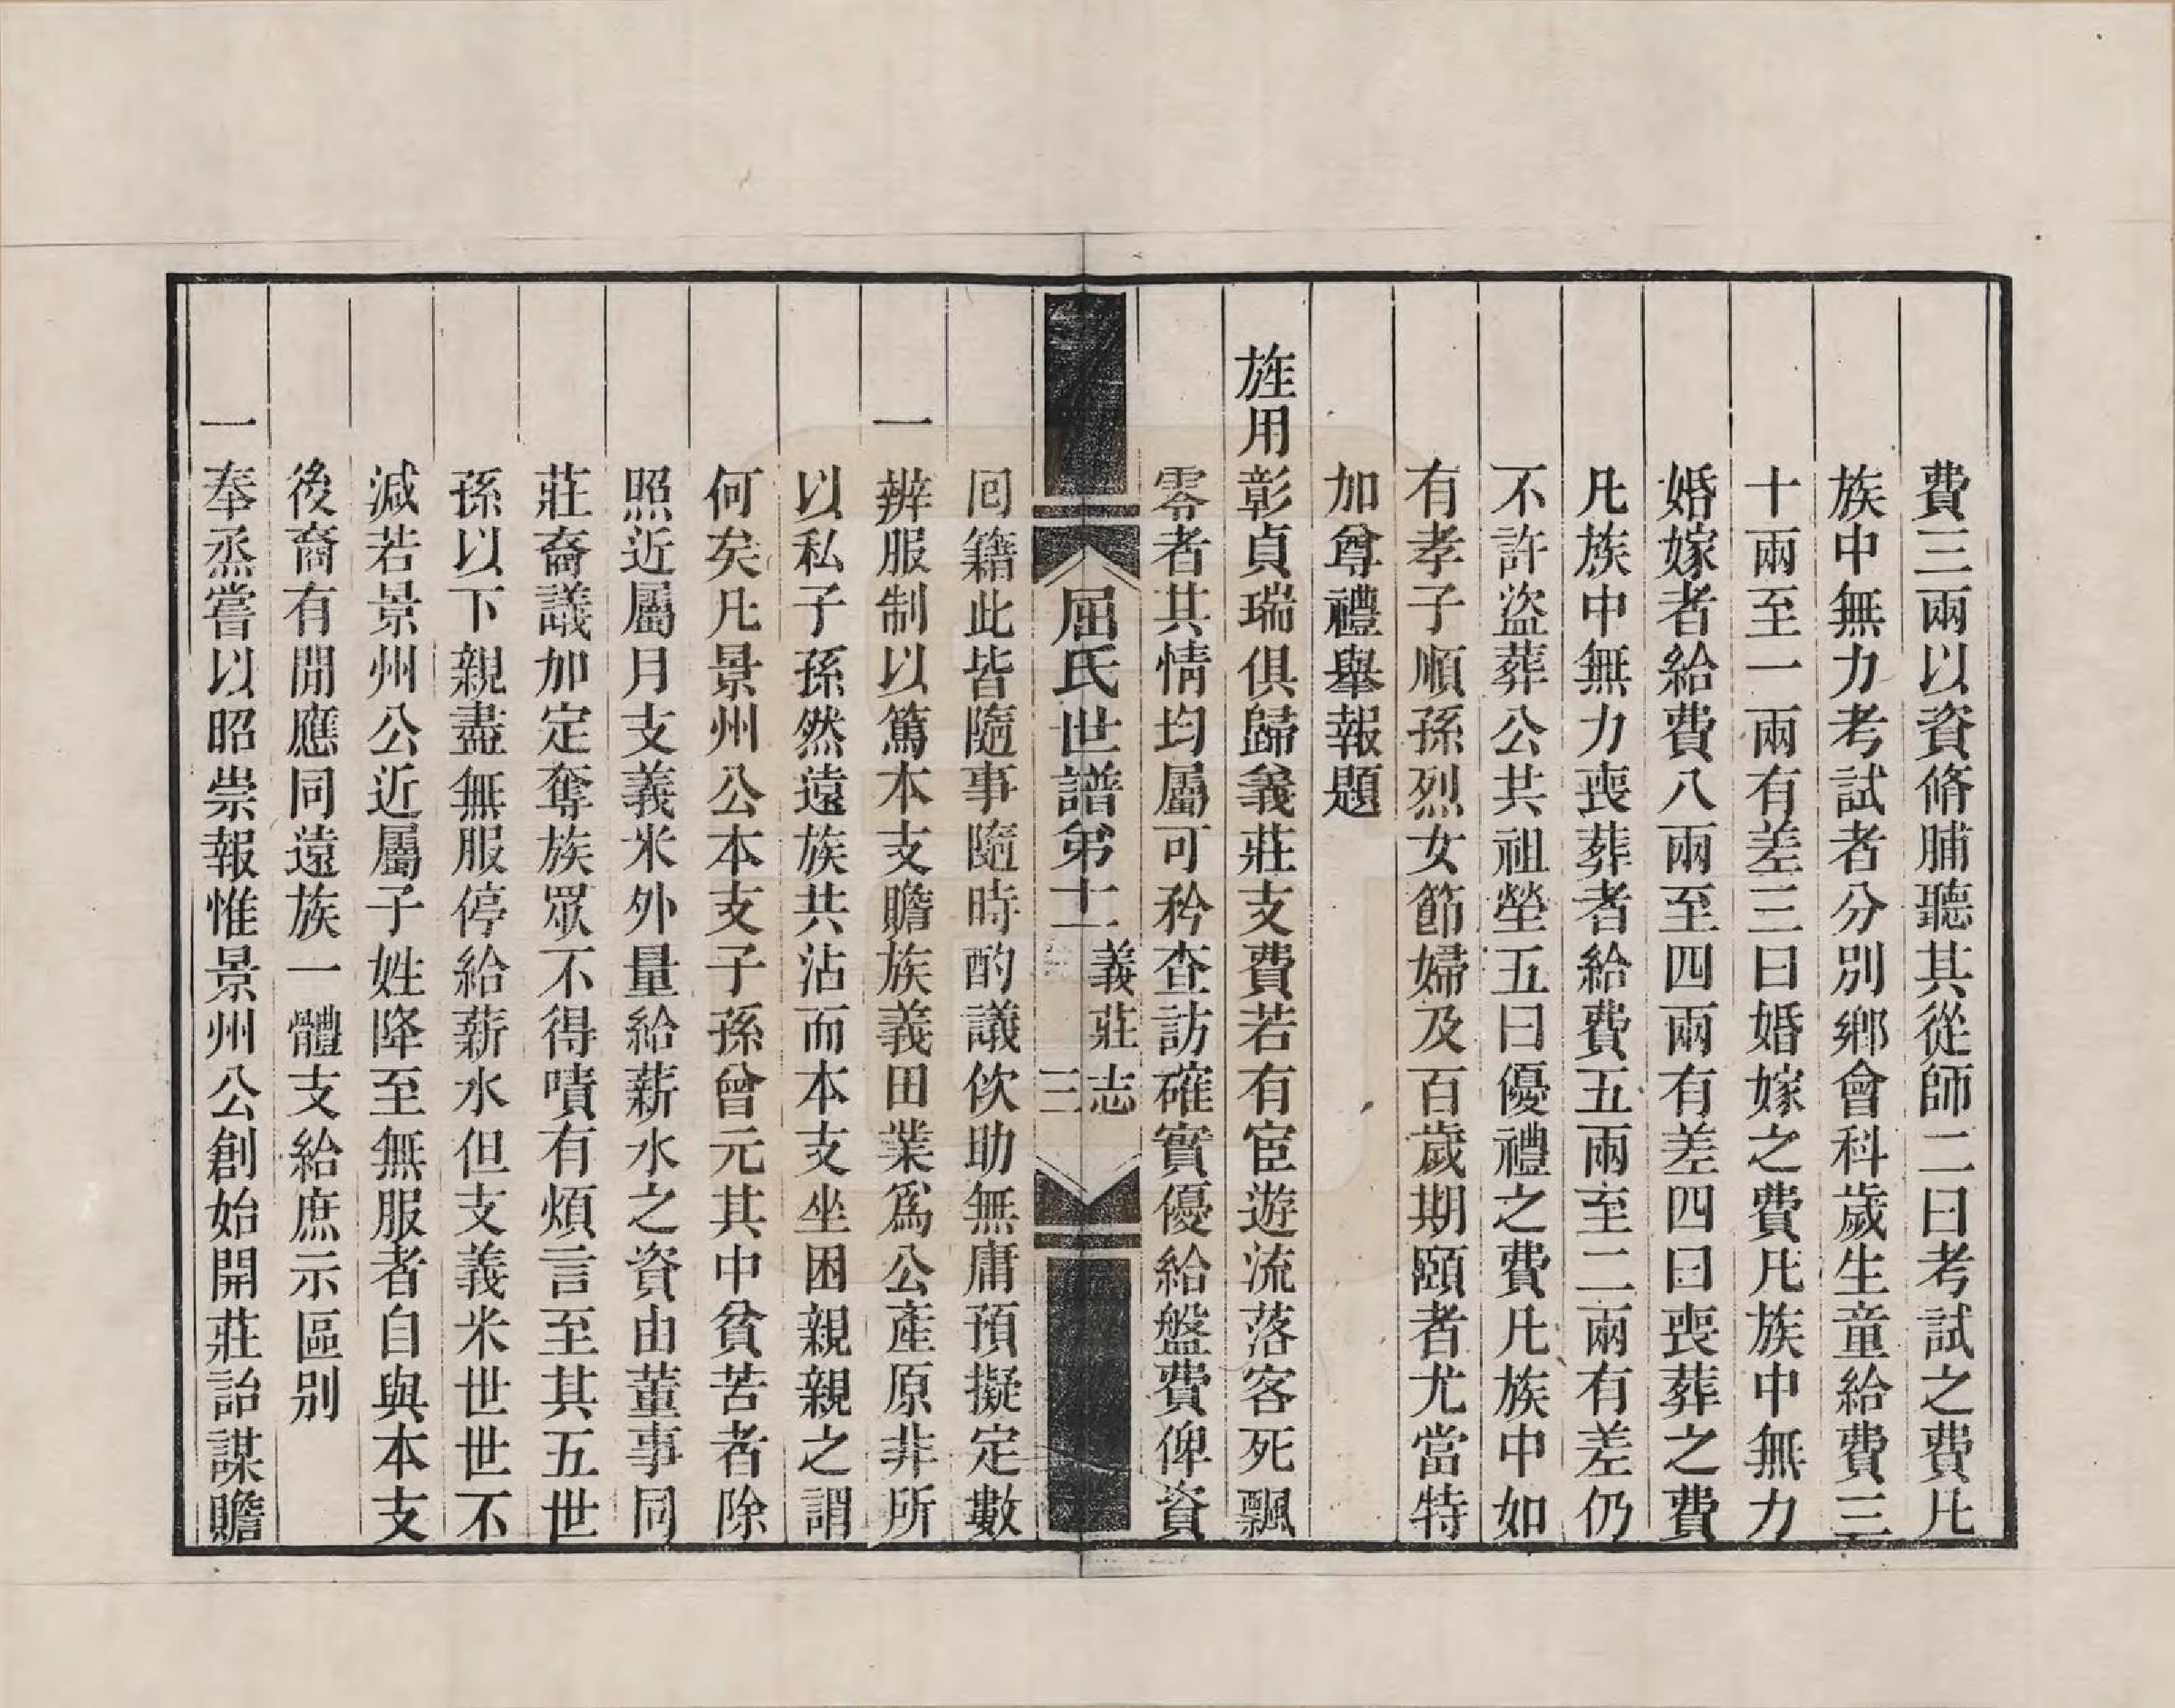 費三兩以資脩脯聽其從師二曰考試之費凡
族中無力考試者分別鄉會科歲生童給費三
十兩至一兩有差三曰婚嫁之費凡族中無力
婚嫁者給費八兩至四兩有差四曰喪葬之費
凡族中無力喪葬者給費五兩至二兩有差仍
不許盜葬公共祖塋五曰優禮之費凡族中如
有孝子順孫烈女節婦及百歲期頤者尤當特
加尊禮舉報題
旌用彰貞瑞俱歸義莊支費若有宦遊流落客死飄
零者其情均屬可矜查訪確實優給盤費俾資
屈氏世譜第十一
義莊志
三
回籍此皆隨事隨時酌議佽助無庸預擬定數
一辨服制以篤本支贍族義田業爲公產原非所
以私子孫然遠族共沾而本支坐困親親之謂
何矣凡景州公本支子孫曾元其中貧苦者除
照近屬月支義米外量給薪水之資由董事同
莊裔議加定奪族眾不得嘖有煩言至其五世
孫以下親盡無服停給薪水但支義米世世不
減若景州公近屬子姓降至無服者自與本支
後裔有間應同遠族一體支給庶示區別
一奉烝嘗以昭崇報惟景州公創始開莊詒謀贍